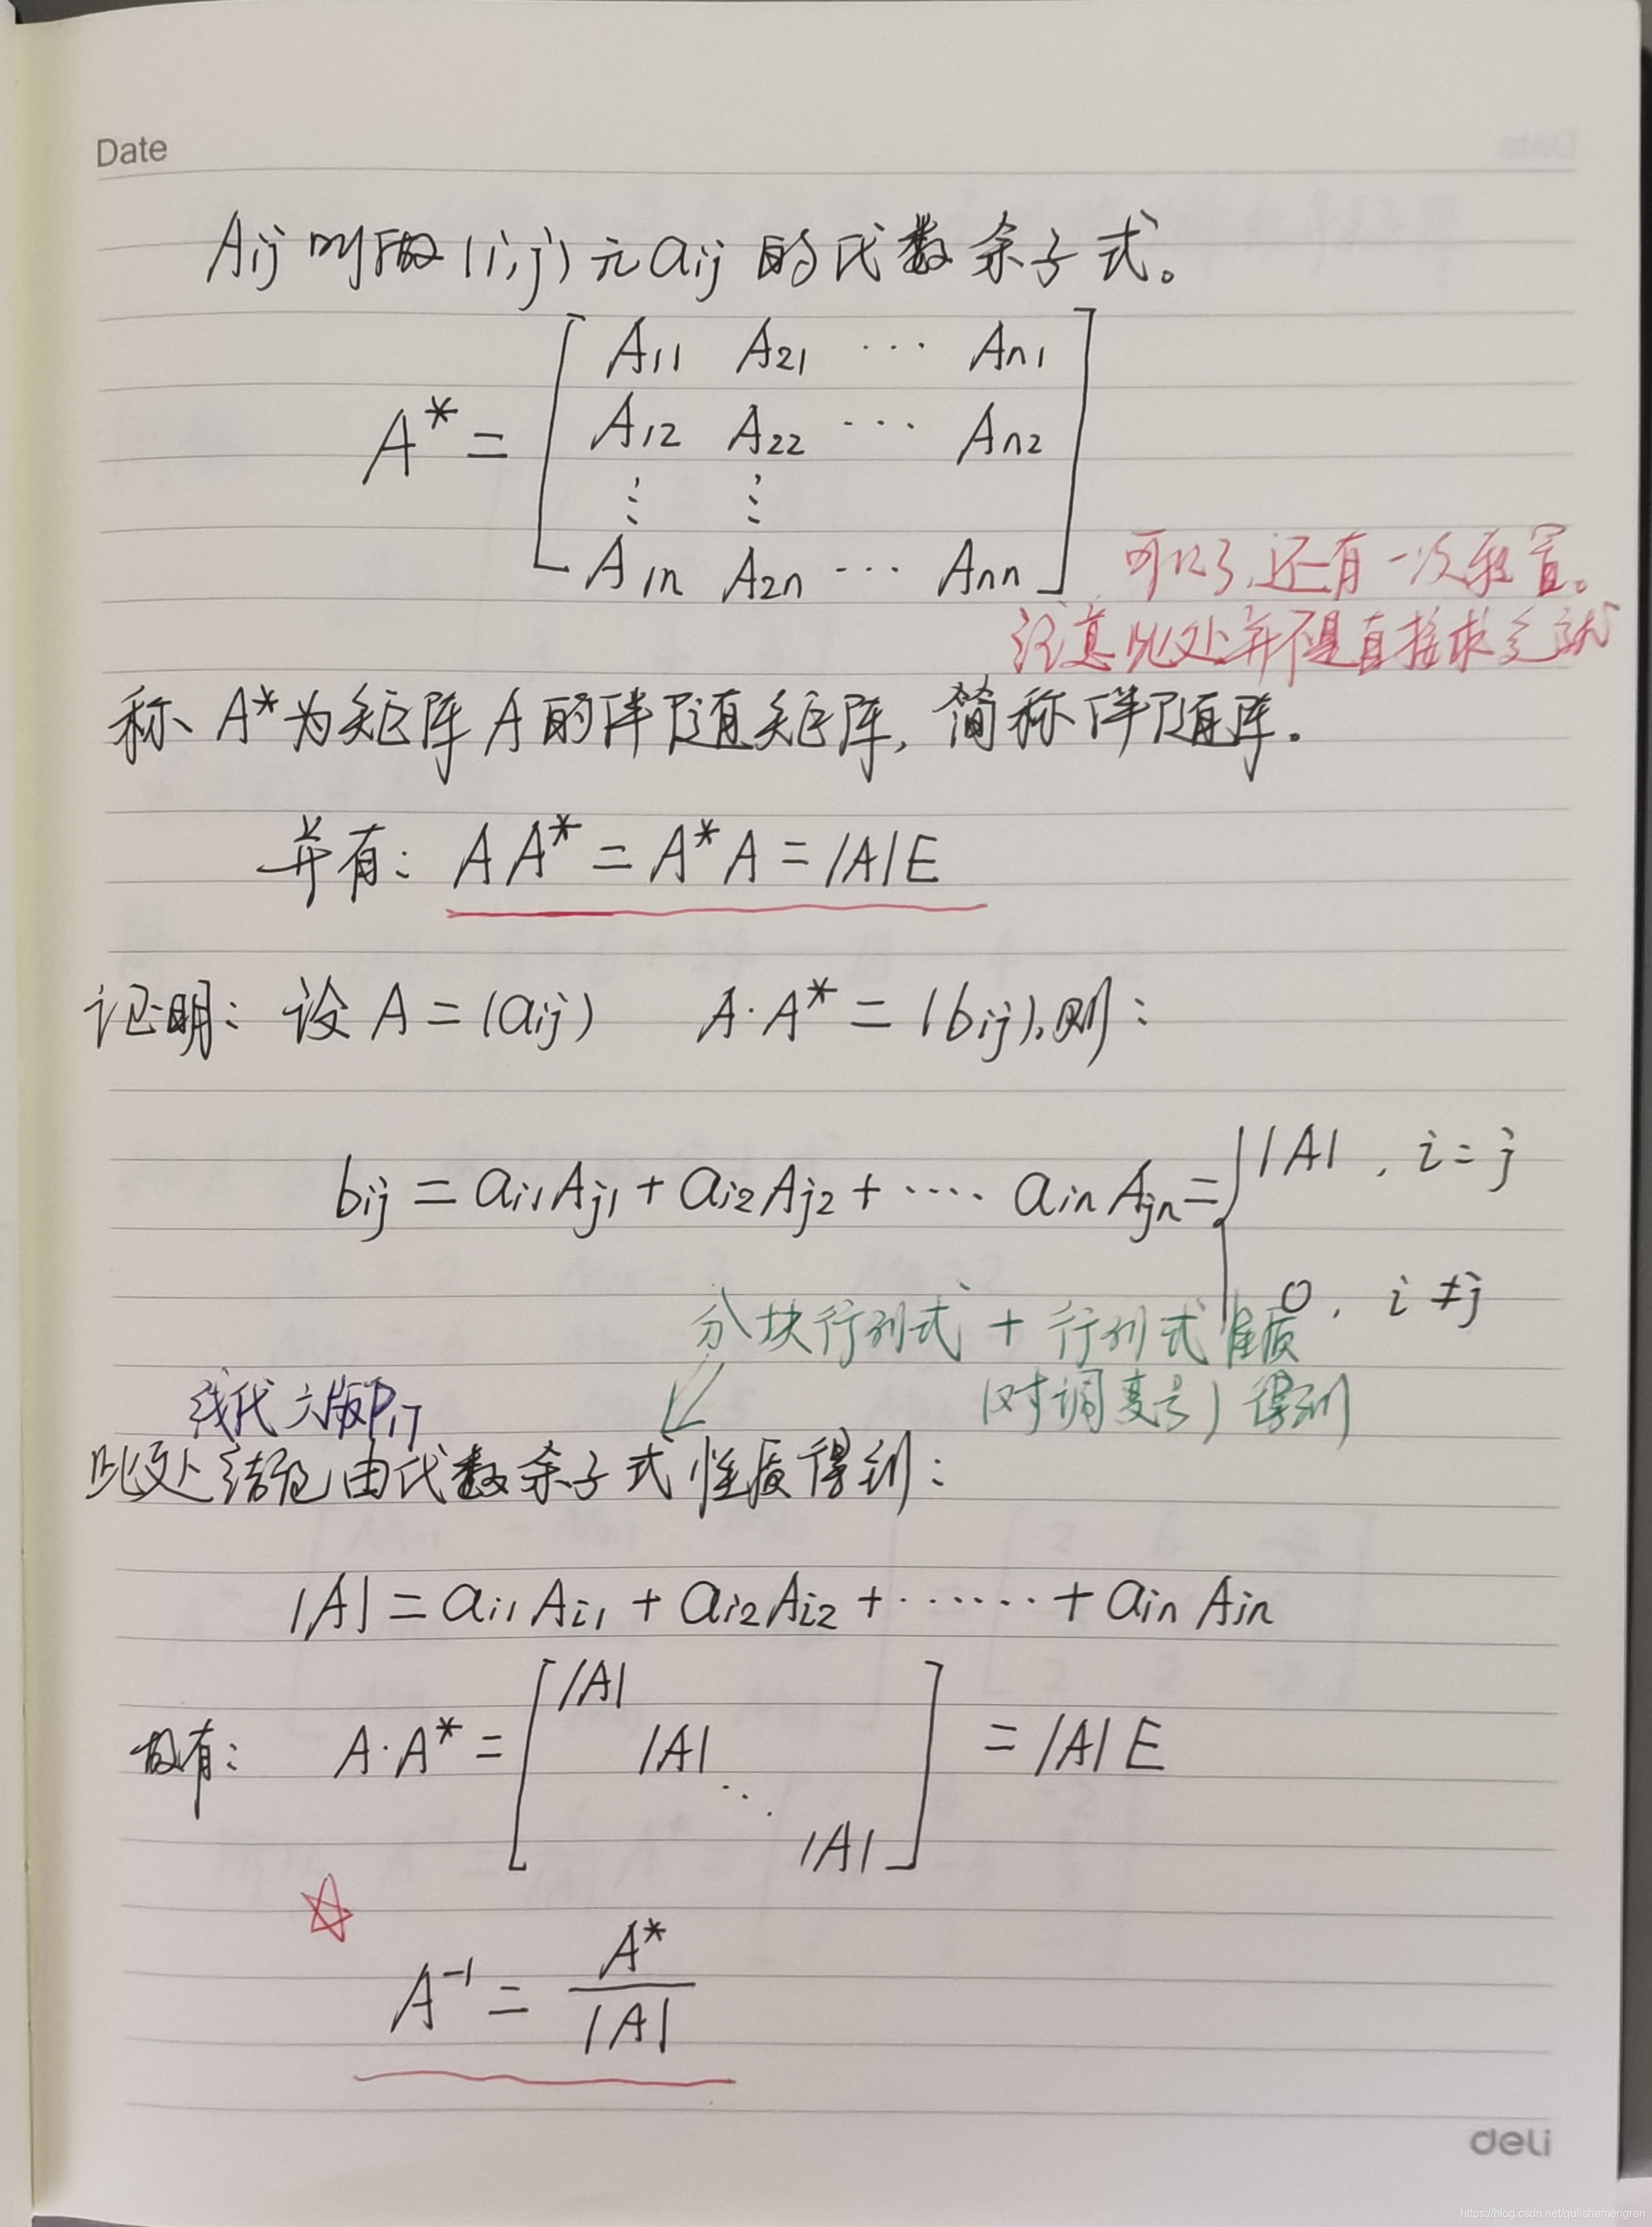 Date
Aij叫做(i,j)元aij的代数余子式。
A* = [ A11 A21 ··· An1
A12 A22 ··· An2
⋮ ⋮
A1n A2n ··· Ann ]
可以了,还有一次转置。
注意此处并不是直接求完就
称A*为矩阵A的伴随矩阵,简称伴随阵.
并有: AA* = A*A = |A|E
证明: 设A = (aij) A·A* = (bij),则:
bij = ai1Aj1 + ai2Aj2 + ···· ain Ajn = { |A| , i = j
0 , i ≠ j
分块行列式 + 行列式性质
(对调变号) 得到
线代六版P17
此处结论由代数余子式性质得到:
|A| = ai1Ai1 + ai2Ai2 + ······ + ain Ain
故有: A·A* = [ |A|
|A|
⋱
|A| ] = |A|E
☆
A⁻¹ = A* / |A|
deli
https://blog.csdn.net/qulishemengren